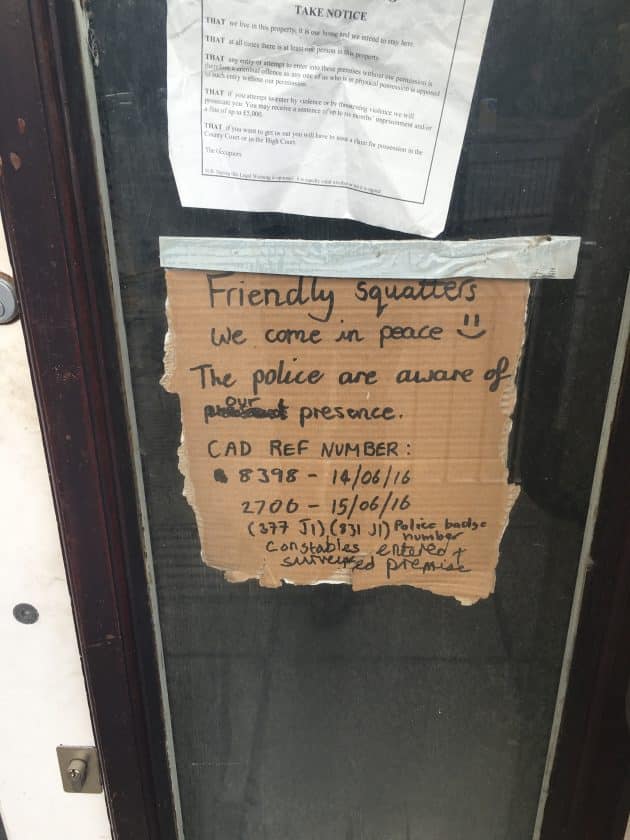 TAKE NOTICE
THAT we live in this property, it is our home and we intend to stay here.
THAT at all times there is at least one person in this property.
THAT any entry or attempt to enter into these premises without our permission is
therefore a criminal offence as any one of us who is in physical possession is opposed
to such entry without our permission.
THAT if you attempt to enter by violence or by threatening violence we will
prosecute you. You may receive a sentence of up to six months' imprisonment and/or
a fine of up to £5,000.
THAT if you want to get us out you will have to issue a claim for possession in the
County Court or in the High Court.
The Occupiers
Friendly squatters
We come in peace
The police are aware of
our presence.
CAD REF NUMBER:
8398 - 14/06/16
2706 - 15/06/16
(377 JI) (831 JI) Police badge
number
Constables entered +
surveyed premise